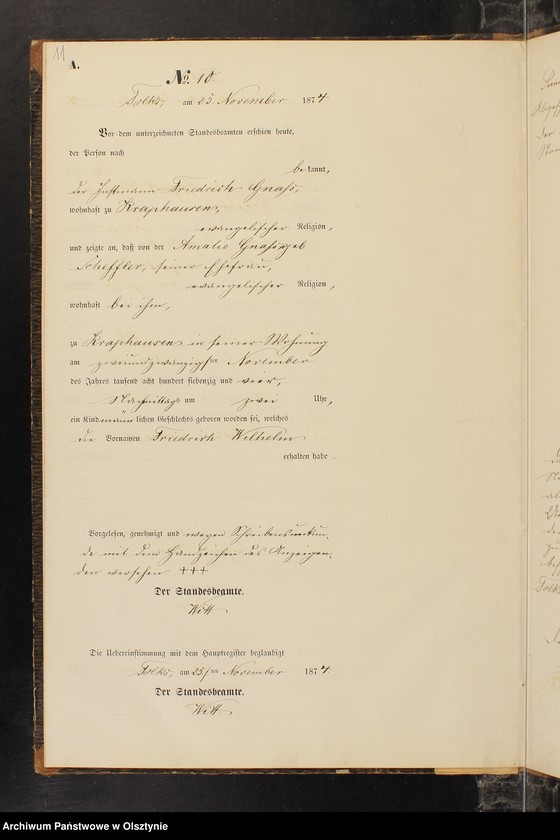 11
A.
No. 10
Tolks, am 25 November 1874
Vor dem unterzeichneten Standesbeamten erschien heute,
der Person nach
bekannt,
der Instmann Friedrich Gnass,
wohnhaft zu Kraphausen,
evangelischer Religion,
und zeigte an, daß von der Amalie Gnass geb
Scheffler, seiner Ehefrau,
evangelischer Religion,
wohnhaft bei ihm,
zu Kraphausen in seiner Wohnung
am zweiundzwanzigsten November
des Jahres tausend acht hundert siebenzig und vier,
Nachmittags um zwei Uhr,
ein Kind männlichen Geschlechts geboren worden sei, welches
die Vornamen Friedrich Wilhelm
erhalten habe.
Vorgelesen, genehmigt und wegen Schreibensunkun-
de mit dem Handzeichen des Anzeigen-
den versehen. +++
Der Standesbeamte.
Witt
Die Uebereinstimmung mit dem Hauptregister beglaubigt
Tolks, am 25ten November 1874
Der Standesbeamte.
Witt
Archiwum Państwowe w Olsztynie